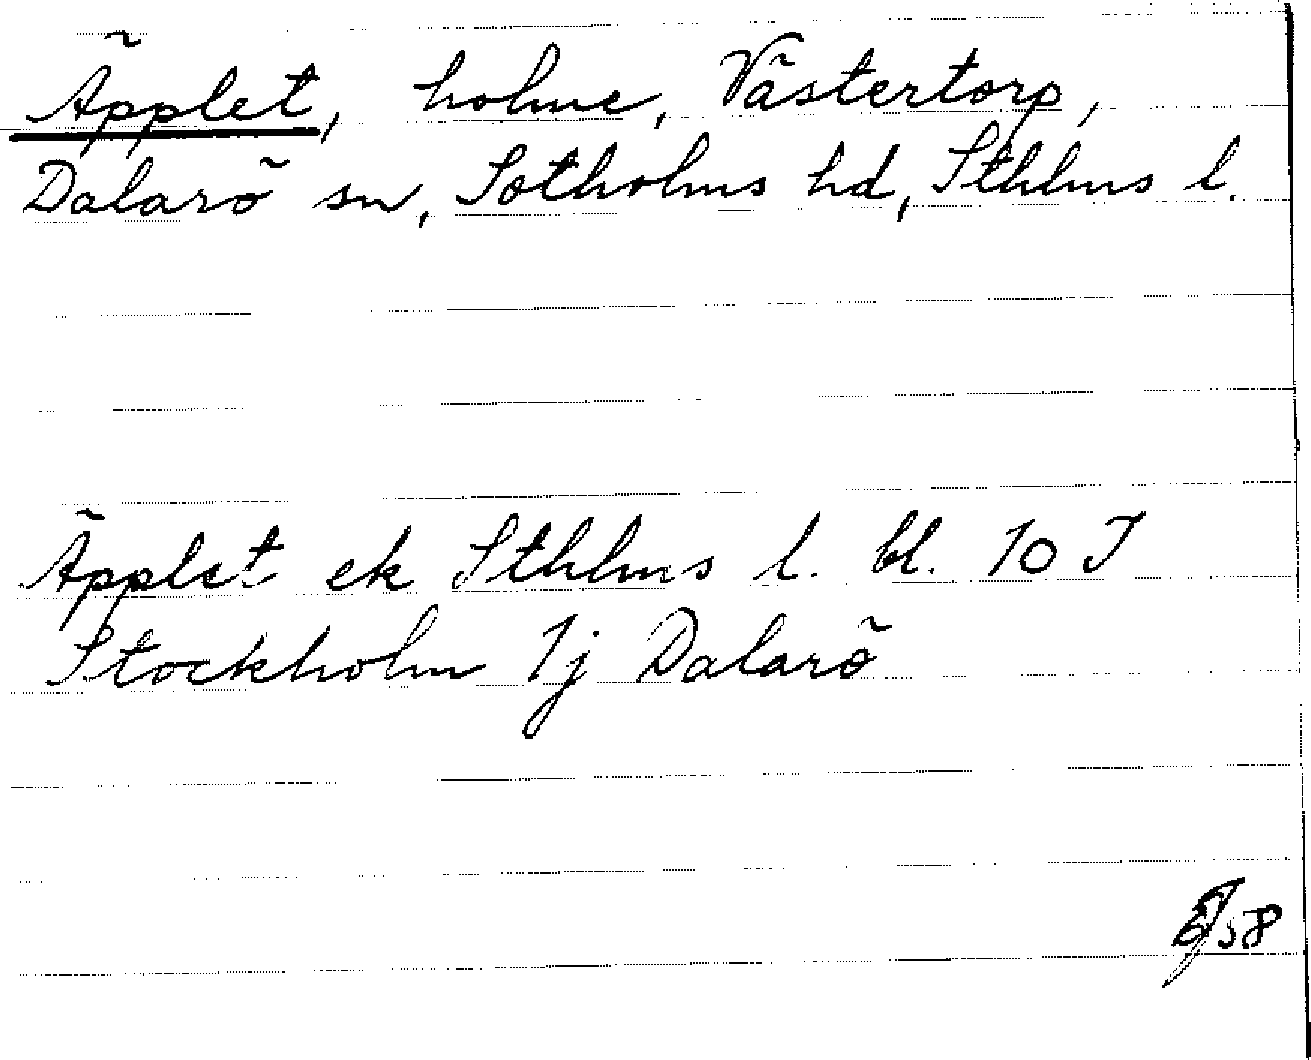 Äpplet, holme, Västertorp,
Dalarö sn, Sotholms hd, Sthlms l.
Äpplet ek Sthlms l. bl. 10 I
Stockholm 1j Dalarö
58